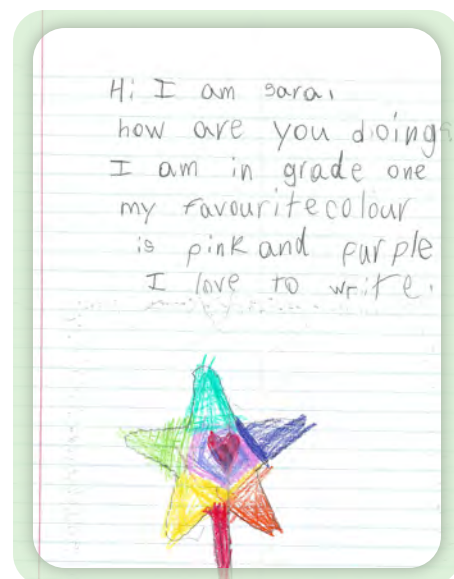 Hi I am sarai
how are you doing?
I am in grade one
my favourite colour
is pink and purple
I love to write.